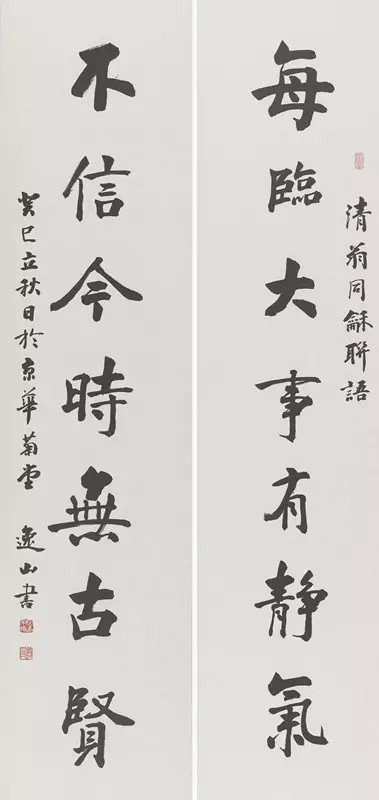 清翁同龢聯語
每臨大事有静氣
不信今時無古賢
癸巳立秋日於京華菊堂 逸山書